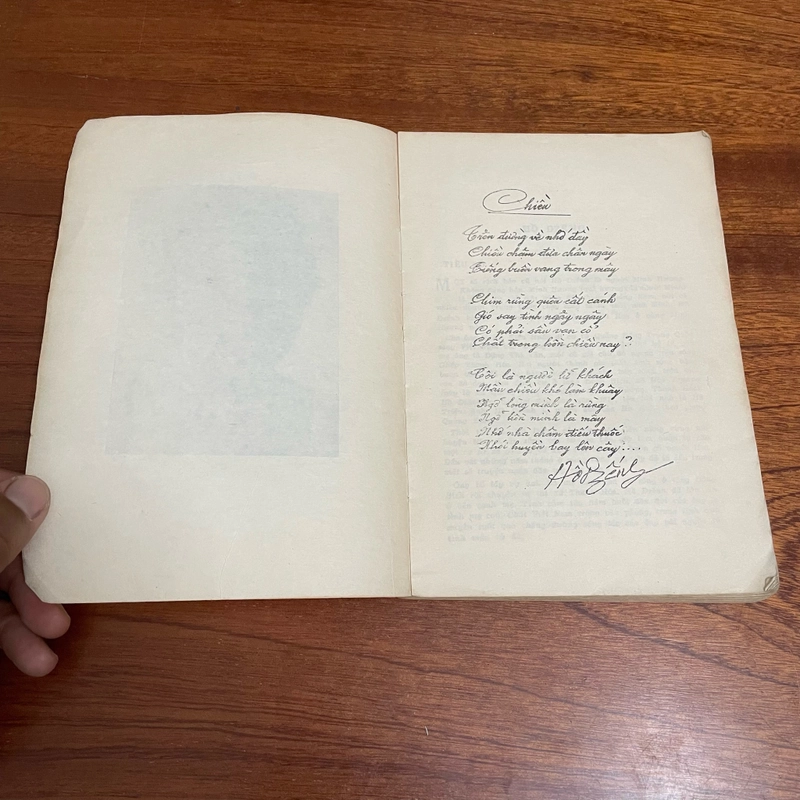 Chiều
Trên đường về nhớ đầy
Chiều chầm đưa chân ngày
Tiếng buồn vang trong mây
Chim rừng quên cất cánh
Gió say tình ngây ngây
Có phải sầu vạn cổ
Chất trong hồn chiều nay ?
Tôi là người lữ khách
Màu chiều khó làm khuây
Ngỡ lòng mình là rừng
Ngỡ hồn mình là mây
Nhớ nhà châm điếu thuốc
Khói huyền bay lên cây ....
Hồ Dzếnh